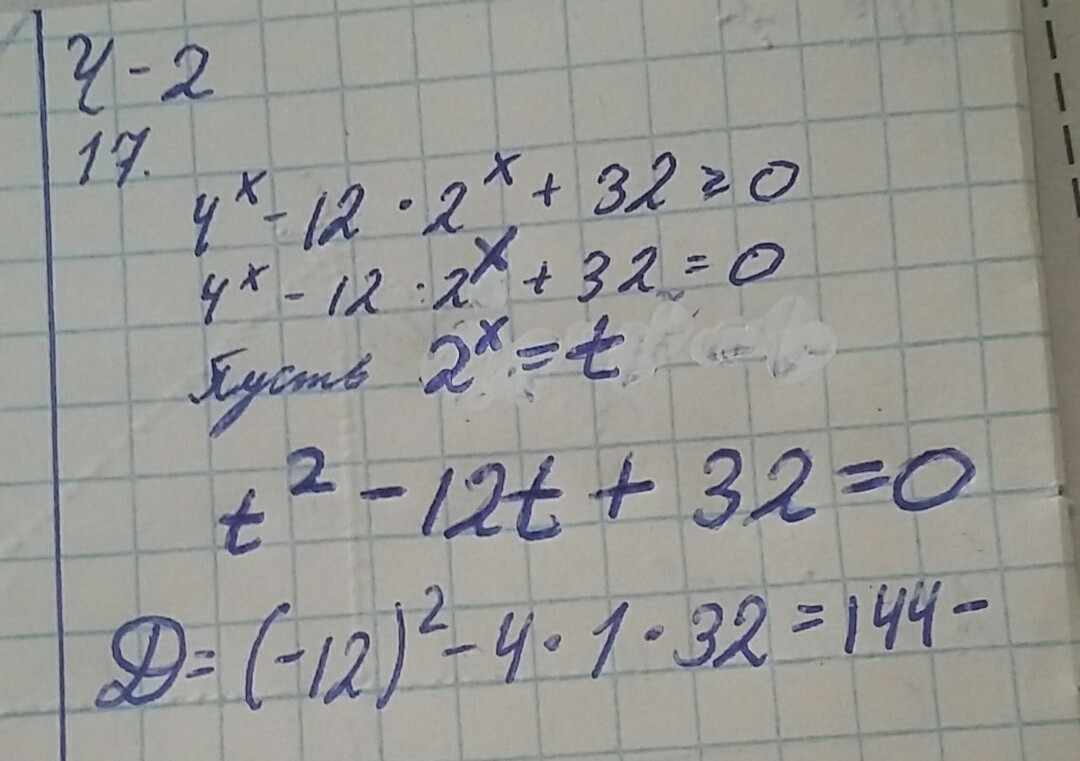 Ч - 2
17.
4^x - 12 · 2^x + 32 ≥ 0
4^x - 12 · 2^x + 32 = 0
Пусть 2^x = t
t^2 - 12t + 32 = 0
D = (-12)^2 - 4 · 1 · 32 = 144 -